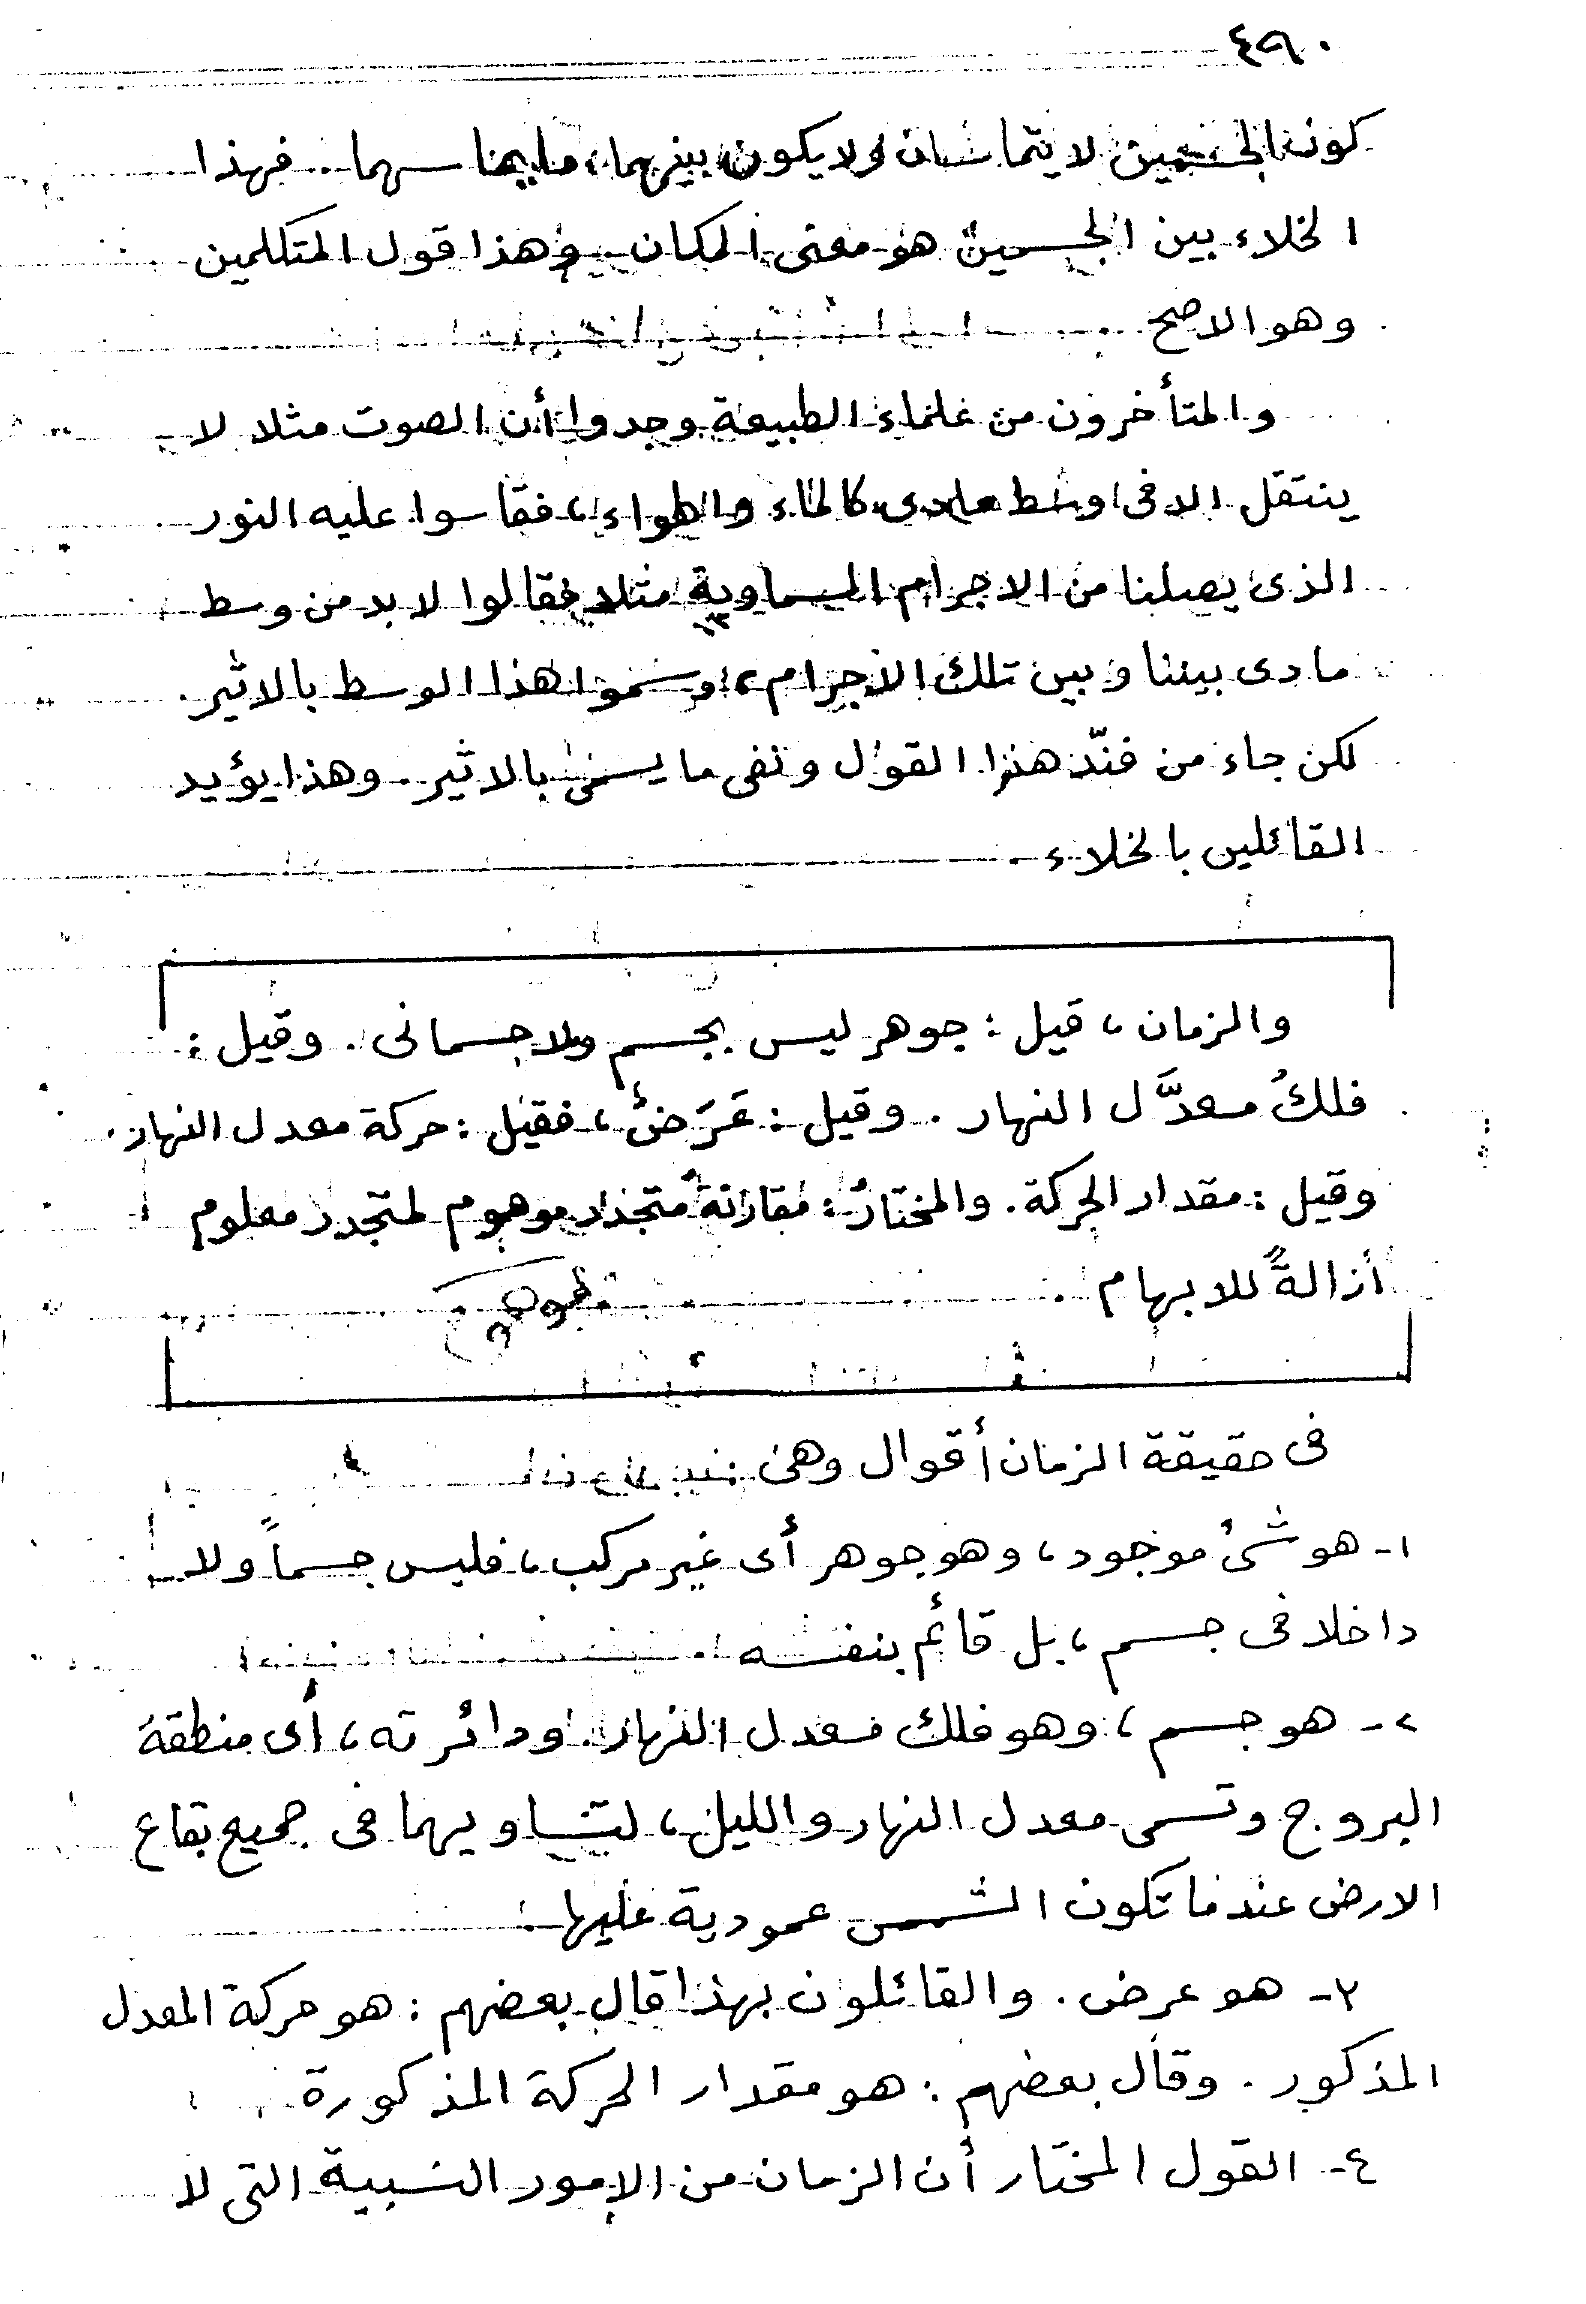 ٤٩٠
كون الجسمين لا يتماسان ولا يكون بينهما، ما يماسهما.. فهذا
الخلاء بين الجسمين هو معنى المكان وهذا قول المتكلمين
وهو الاصح
والمتأخرون من علماء الطبيعة وجدوا أن الصوت مثلا لا
ينتقل الا فى وسط مادى كالماء والهواء، فقاسوا عليه النور
الذى يصلنا من الاجرام السماوية مثلا فقالوا لا بد من وسط
مادى بيننا وبين تلك الاجرام، وسموا هذا الوسط بالاثير.
لكن جاء من فنّد هذا القول ونفى ما يسمى بالاثير. وهذا يؤيد
القائلين بالخلاء.
والزمان، قيل: جوهر ليس بجسم ولا جسمانى. وقيل:
فلكُ معدَّل النهار. وقيل: عَرَضٌ، فقيل: حركة معدل النهار.
وقيل: مقدار الحركة. والمختارُ: مقارنةُ متجدد موهوم لمتجدد معلوم
أزالةً للابهام.
فى حقيقة الزمان أقوال وهى:
١- هو شئ موجود، وهو جوهر أى غير مركب، فليس جسماً ولا
داخلا فى جسم، بل قائم بنفسه
٢- هو جسم، وهو فلك معدل النهار. ودائرته، أى منطقة
البروج وتسمى معدل النهار والليل، لتساويهما فى جميع بقاع
الارض عندما تكون الشمس عمودية عليها.
٣- هو عرض. والقائلون بهذا قال بعضهم: هو حركة المعدل
المذكور. وقال بعضهم: هو مقدار الحركة المذكورة
٤- القول المختار أن الزمان من الامور النسبية التى لا